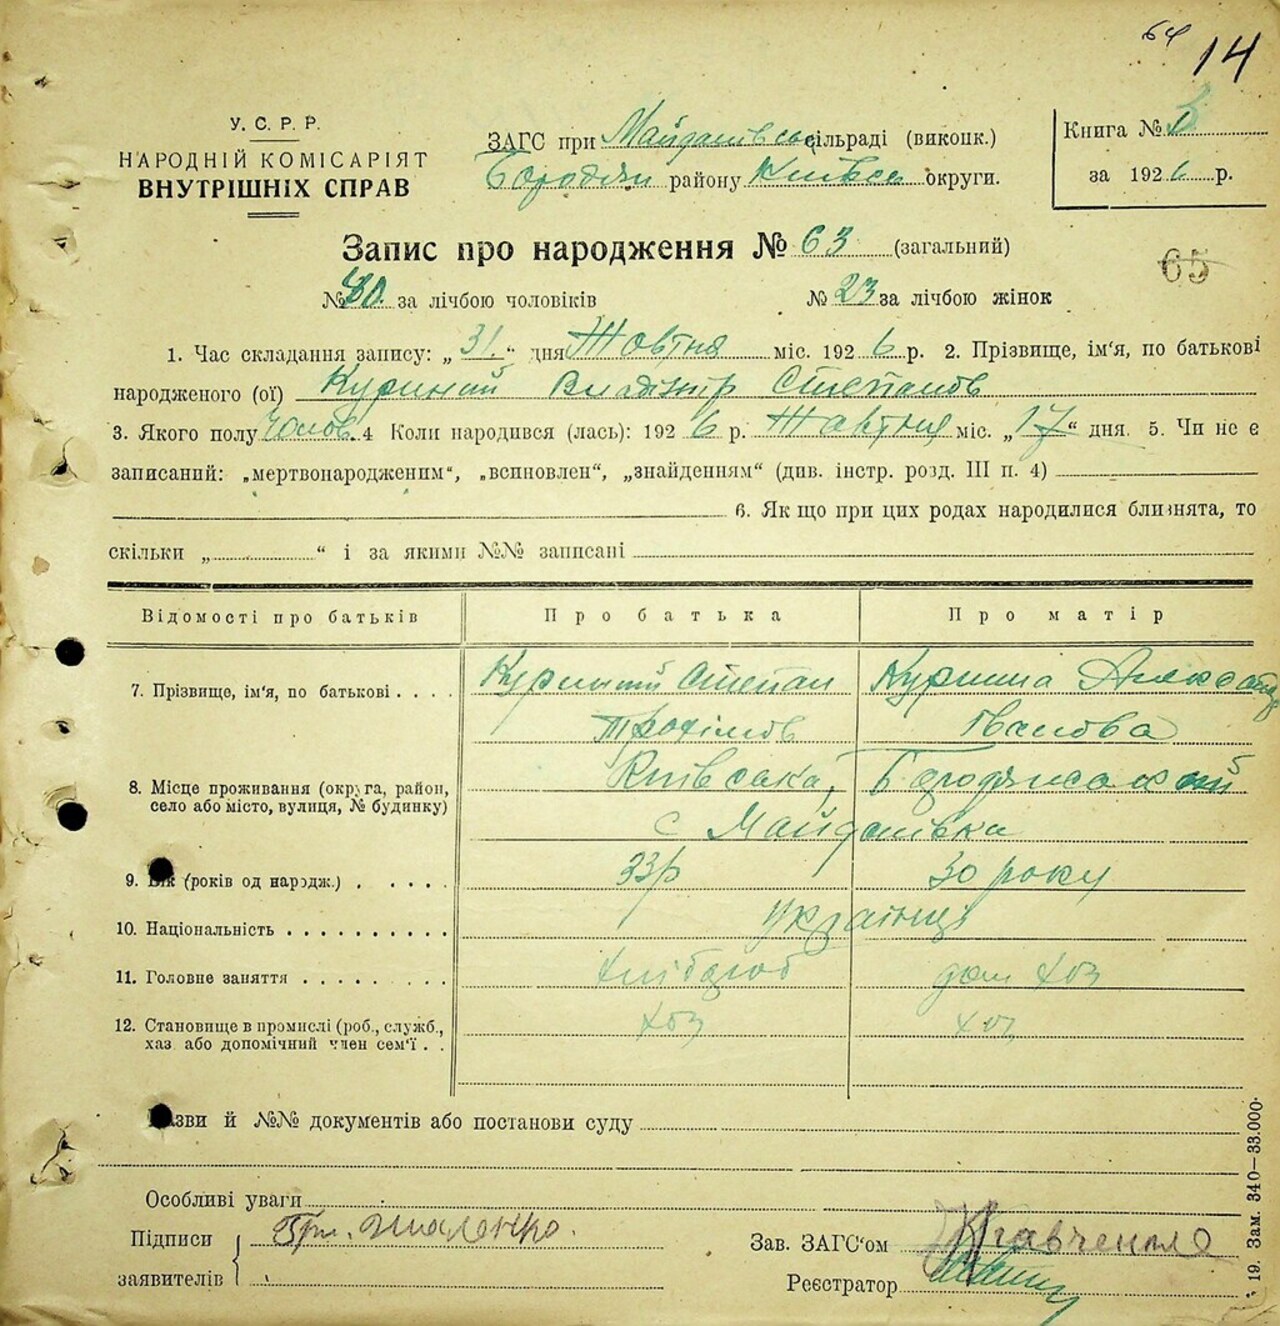 64 14
У. С. Р. Р.
НАРОДНІЙ КОМІСАРІЯТ
ВНУТРІШНІХ СПРАВ
ЗАГС при Майданівські сільраді (виконк.)
Бородян району Київсь округи.
Книга №
за 1926 р.
Запис про народження № 63 (загальний)
65
№ 40 за лічбою чоловіків № 23 за лічбою жінок
1. Час складання запису: „31.“ дня Жовтня міс. 1926 р. 2. Прізвище, ім'я, по батькові
народженого (ої) Куриний Владімір Степанов
3. Якого полу Чолов. 4 Коли народився (лась): 1926 р. Жовтня міс. „17“ дня. 5. Чи не є
записаний: „мертвонародженим“, „всиновлен“, „знайденням“ (див. інстр. розд. III п. 4)
6. Як що при цих родах народилися близнята, то
скільки „ “ і за якими №№ записані
Відомості про батьків Про батька Про матір
7. Прізвище, ім'я, по батькові . . . . Куриний Степан Курина Александ
Трохімов Іванова
8. Місце проживання (округа, район, село або місто, вулиця, № будинку) Київська,
с Майданівка
9. Вік (років од народж.) . . . . . 33р 30 року
10. Національність . . . . . . . . . . українці
11. Головне заняття . . . . . . . . . хлібороб дом хоз
12. Становище в промислі (роб., служб., хоз хоз
хаз або допомічний член сем'ї . .
Назви й №№ документів або постанови суду
Особливі уваги
Підписи
заявителів
Зав. ЗАГС'ом Кравченко
Реєстратор
19. Зам. 340—33.000.